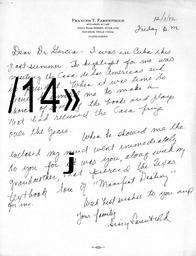 FRANCIS T. FARENTHOLD
12/1/02
Friday P.M.
Dear Dr. Garcia - I was in Cuba this
past summer. The highlight for me was
visiting the Casa de las Americas and
when it was time to
me to make a
the books and plays
that had received the Casa prize
over the years.
When he showed me the
enclosed my mind went immediately
to you for it was you, along with my
grandmother, that pierced the Texas
textbook lore of "Manifest Destiny"
for me.
Most best wishes to you and
your family
Sissy Farenthold
/14»
j